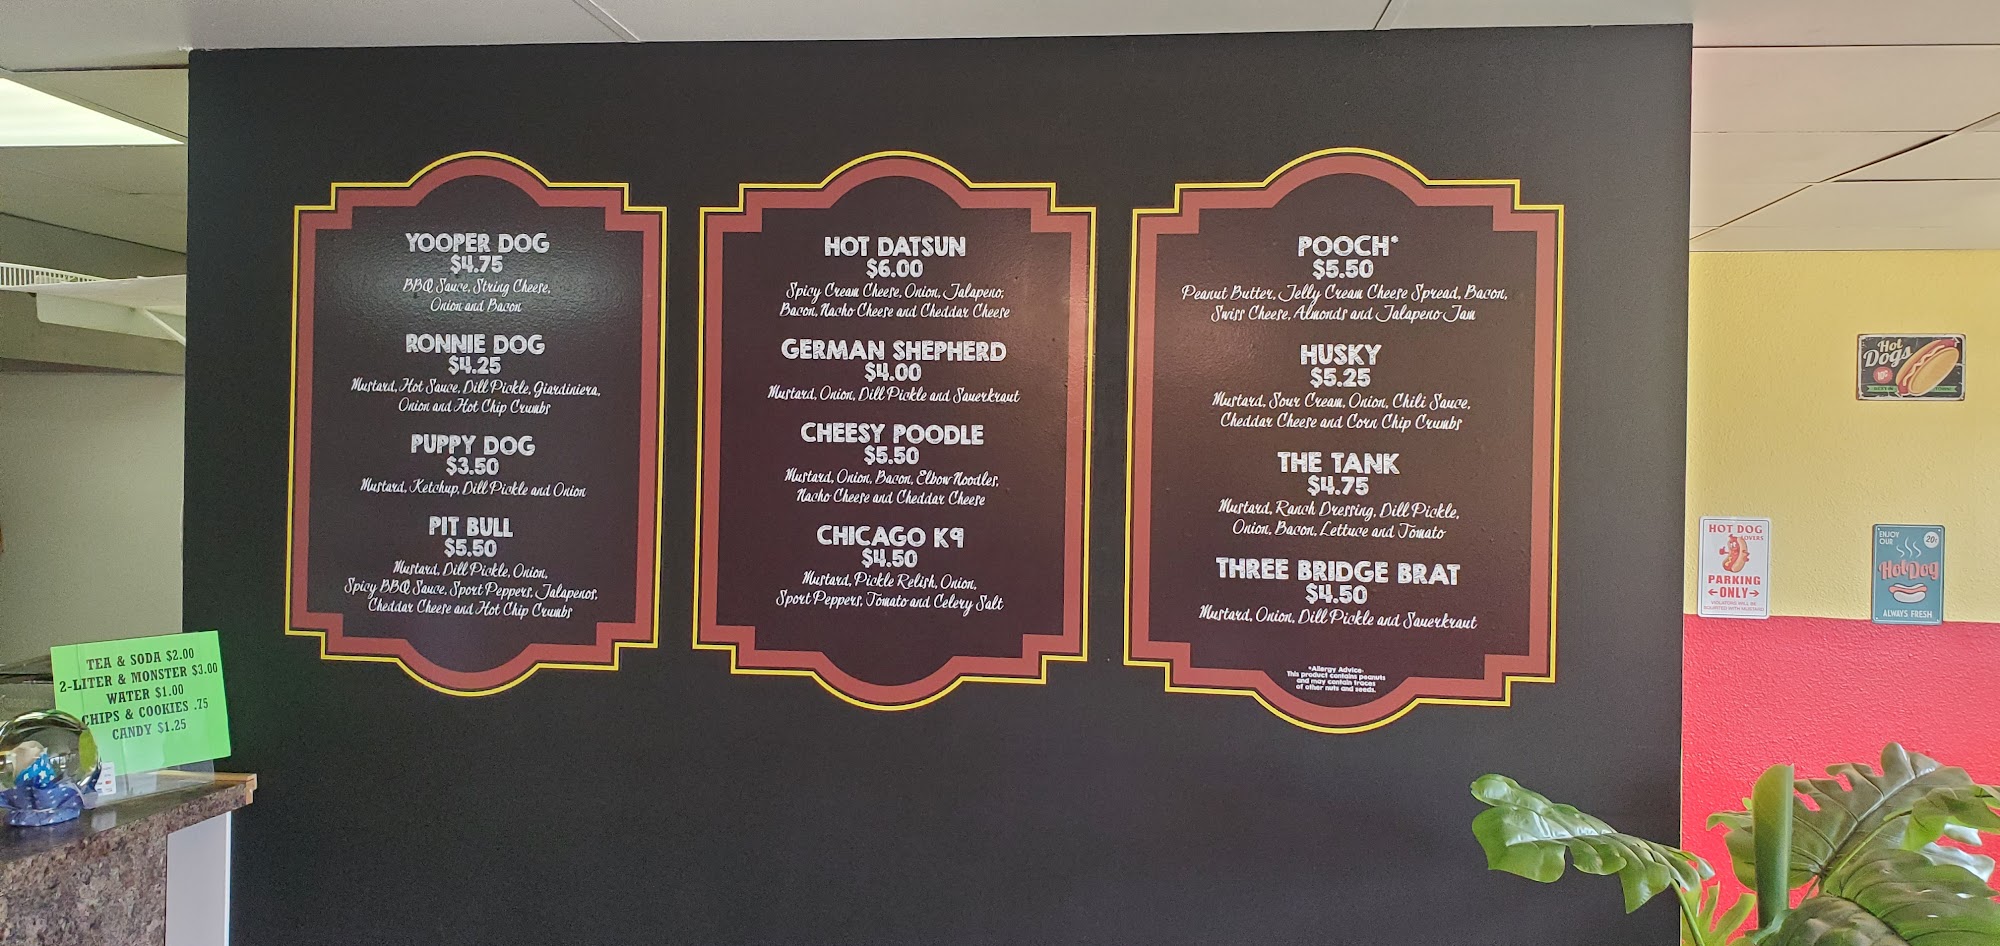 YOOPER DOG
$4.75
BBQ Sauce, String Cheese,
Onion and Bacon
RONNIE DOG
$4.25
Mustard, Hot Sauce, Dill Pickle, Giardiniera,
Onion and Hot Chip Crumbs
PUPPY DOG
$3.50
Mustard, Ketchup, Dill Pickle and Onion
PIT BULL
$5.50
Mustard, Dill Pickle, Onion,
Spicy BBQ Sauce, Sport Peppers, Jalapenos,
Cheddar Cheese and Hot Chip Crumbs
HOT DATSUN
$6.00
Spicy Cream Cheese, Onion, Jalapeno,
Bacon, Nacho Cheese and Cheddar Cheese
GERMAN SHEPHERD
$4.00
Mustard, Onion, Dill Pickle and Sauerkraut
CHEESY POODLE
$5.50
Mustard, Onion, Bacon, Elbow Noodles,
Nacho Cheese and Cheddar Cheese
CHICAGO K9
$4.50
Mustard, Pickle Relish, Onion,
Sport Peppers, Tomato and Celery Salt
POOCH*
$5.50
Peanut Butter, Jelly Cream Cheese Spread, Bacon,
Swiss Cheese, Almonds and Jalapeno Jam
HUSKY
$5.25
Mustard, Sour Cream, Onion, Chili Sauce,
Cheddar Cheese and Corn Chip Crumbs
THE TANK
$4.75
Mustard, Ranch Dressing, Dill Pickle,
Onion, Bacon, Lettuce and Tomato
THREE BRIDGE BRAT
$4.50
Mustard, Onion, Dill Pickle and Sauerkraut
*Allergy Advice:
This product contains peanuts
and may contain traces
of other nuts and seeds.
TEA & SODA $2.00
2-LITER & MONSTER $3.00
WATER $1.00
CHIPS & COOKIES .75
CANDY $1.25
Hot
Dogs
HOT DOG
LOVERS
PARKING
ONLY
VIOLATORS WILL BE
SQUIRTED WITH MUSTARD
ENJOY
OUR
20¢
Hot Dog
ALWAYS FRESH